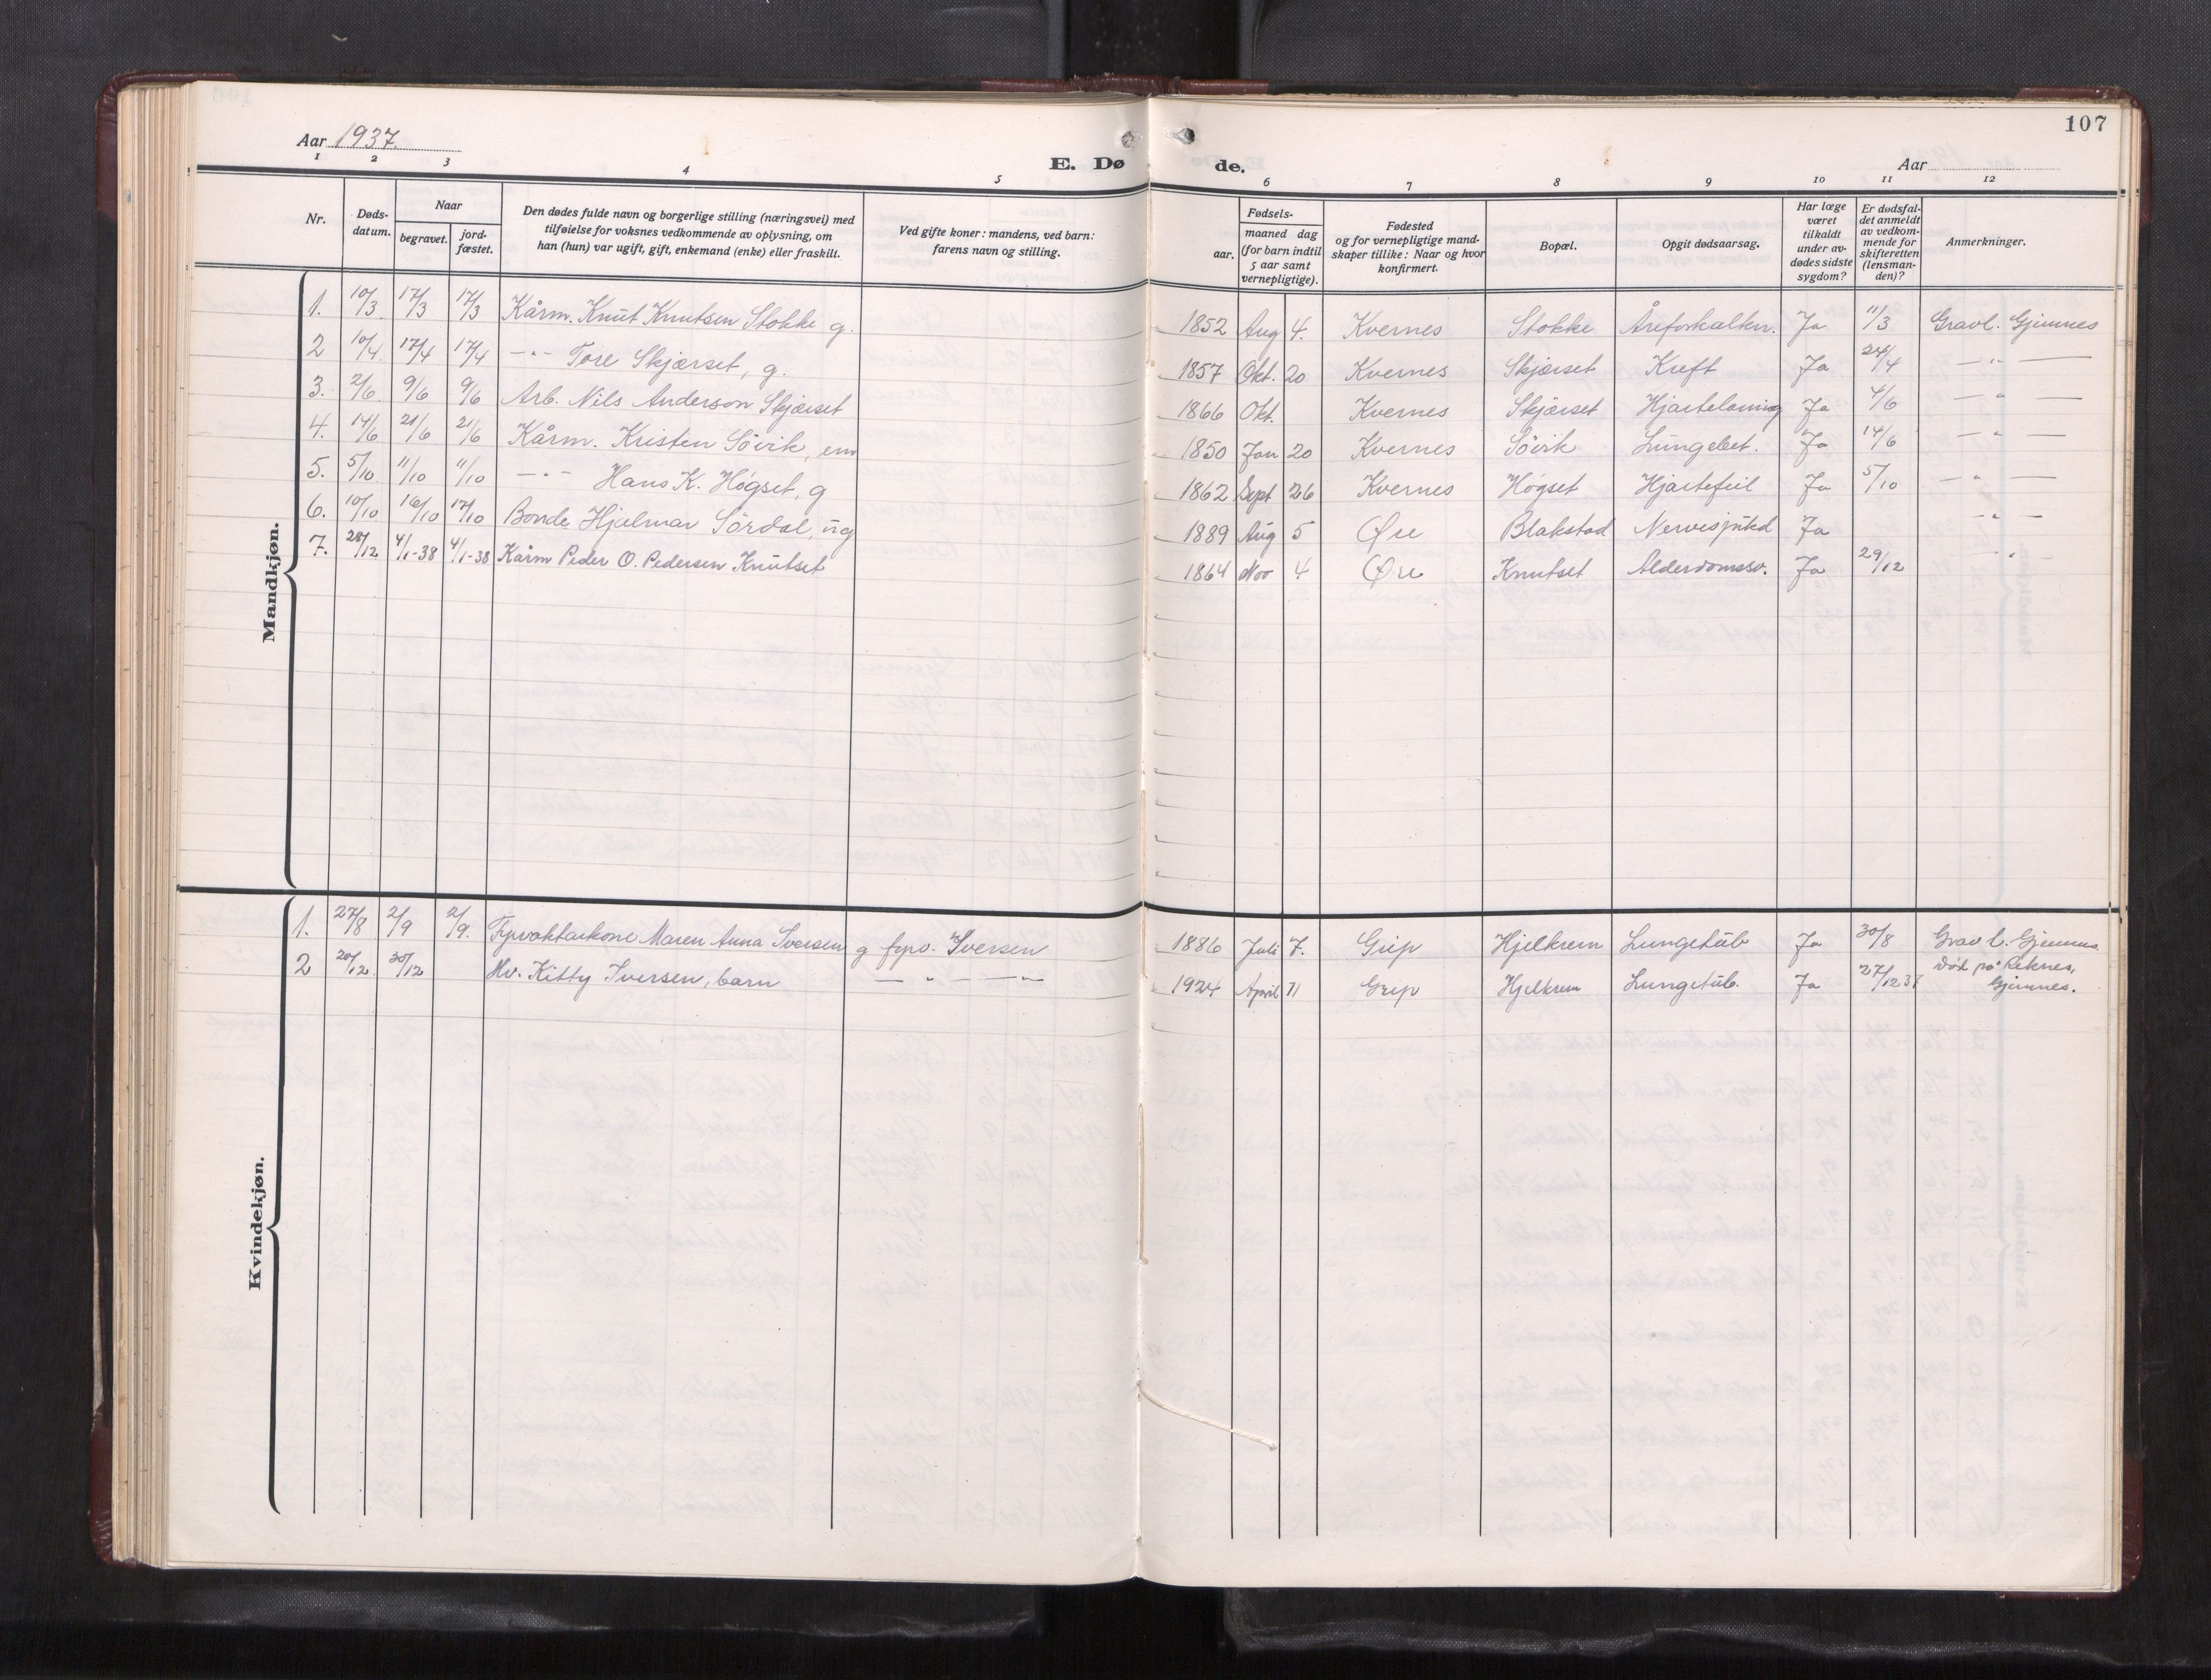 107
Aar 1937.
E. Døde.
Aar
1 2 3 4 5 6 7 8 9 10 11 12
Nr.
Døds-datum.
Naar
begravet.
jord-fæstet.
Den dødes fulde navn og borgerlige stilling (næringsvei) med
tilføielse for voksnes vedkommende av oplysning, om
han (hun) var ugift, gift, enkemand (enke) eller fraskilt.
Ved gifte koner: mandens, ved barn:
farens navn og stilling.
Fødsels-
aar.
maaned dag
(for barn indtil
5 aar samt
vernepligtige).
Fødested
og for vernepligtige mand-
skaper tillike: Naar og hvor
konfirmert.
Bopæl.
Opgit dødsaarsag.
Har læge
været
tilkaldt
under av-
dødes sidste
sygdom?
Er dødsfal-
det anmeldt
av vedkom-
mende for
skifteretten
(lensman-
den)?
Anmerkninger.
Mandkjøn.
1. 10/3 17/3 17/3 Kårm. Knut Knutsen Stokke g. 1852 Aug 4. Kvernes Stokke Åreforkalkn. Ja 11/3 Gravl. Gjemnes
2 10/4 17/4 17/4 —"— Tore Skjærset, g. 1857 Okt. 20 Kvernes Skjærset Kreft Ja 24/4 —"—
3. 2/6 9/6 9/6 Arb. Nils Anderson Skjærset 1866 Okt. Kvernes Skjærset Hjartelaming Ja 4/6 —"—
4. 14/6 21/6 21/6 Kårm. Kristen Sövik, em 1850 Jan 20 Kvernes Sövik Lungebet. Ja 14/6 —"—
5. 5/10 11/10 11/10 —"— Hans K. Høgset, g 1862 Sept 26 Kvernes Høgset Hjartefeil Ja 5/10 —"—
6. 10/10 16/10 17/10 Bonde Hjalmar Sördal, ug 1889 Aug 5 Øre Blakstad Nervesjukd Ja "—
7. 28/12 4/1-38 4/1-38 Kårm Peder O. Pedersen Knutset 1864 Nov 4 Øre Knutset Alderdomssv. Ja 29/12 "
Kvindekjøn.
1. 27/8 2/9 2/9. Fyrvaktarkone Maren Anna Iversen g fyrv. Iversen 1886 Juli 7. Grip Hjelkrem Lungetub Ja 30/8 Gravl. Gjemnes
2 20/12 30/12 Hv. Kitty Iversen, barn —"— —"— 1924 April 11 Grip Hjelkrem Lungetub. Ja 27/12 37 Död på Reknes,
Gjemnes.